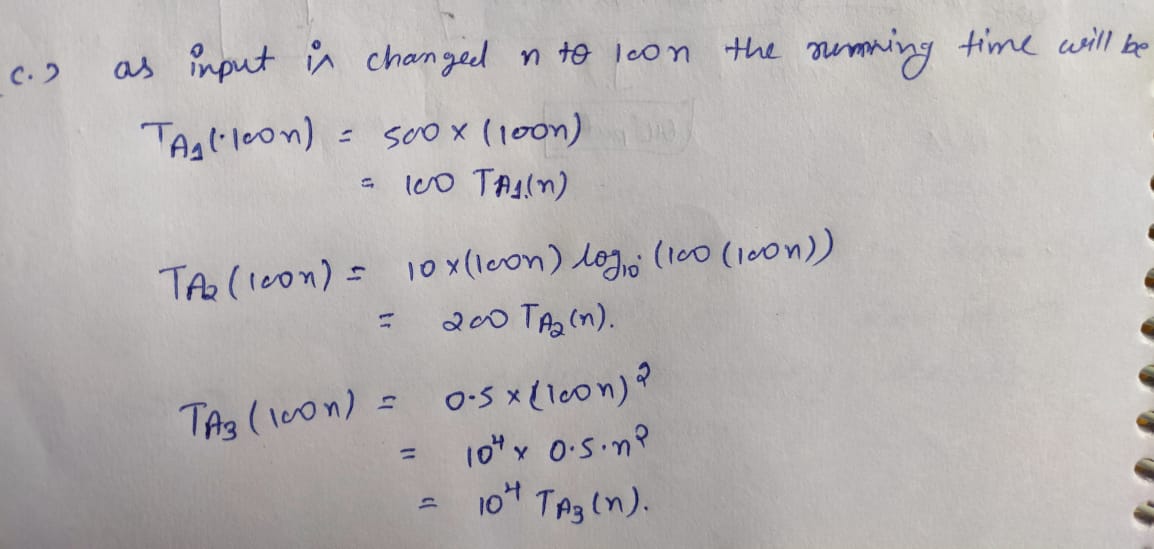 c.) as input is changed n to 100n the running time will be
TA1(100n) = 500 x (100n)
= 100 TA1(n)
TA2(100n) = 10 x(100n) log10 (100(100n))
= 200 TA2(n).
TA3(100n) = 0.5 x(100n)²
= 10⁴ x 0.5.n²
= 10⁴ TA3(n).